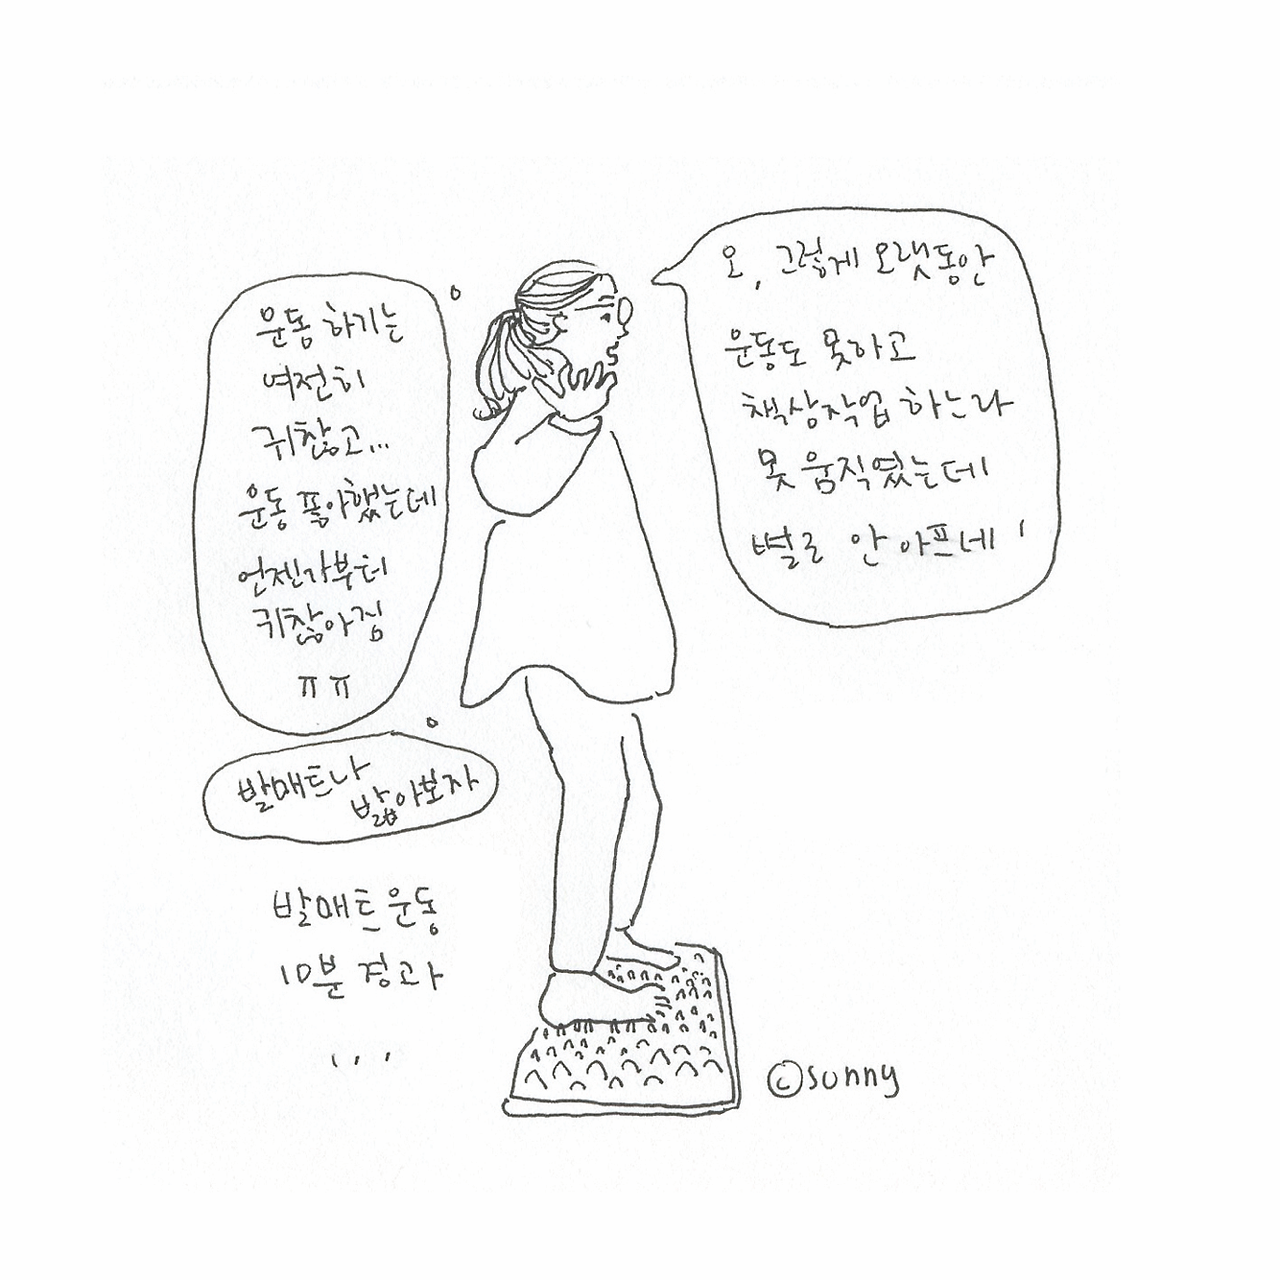 운동 하기는
여전히
귀찮고...
운동 좋아했는데
언젠가부터
귀찮아짐
ㅠㅠ
발매트나
밟아보자
발매트 운동
10분 경과
...
오, 그렇게 오랫동안
운동도 못하고
책상작업 하느라
못 움직였는데
별로 안 아프네'
©sunny